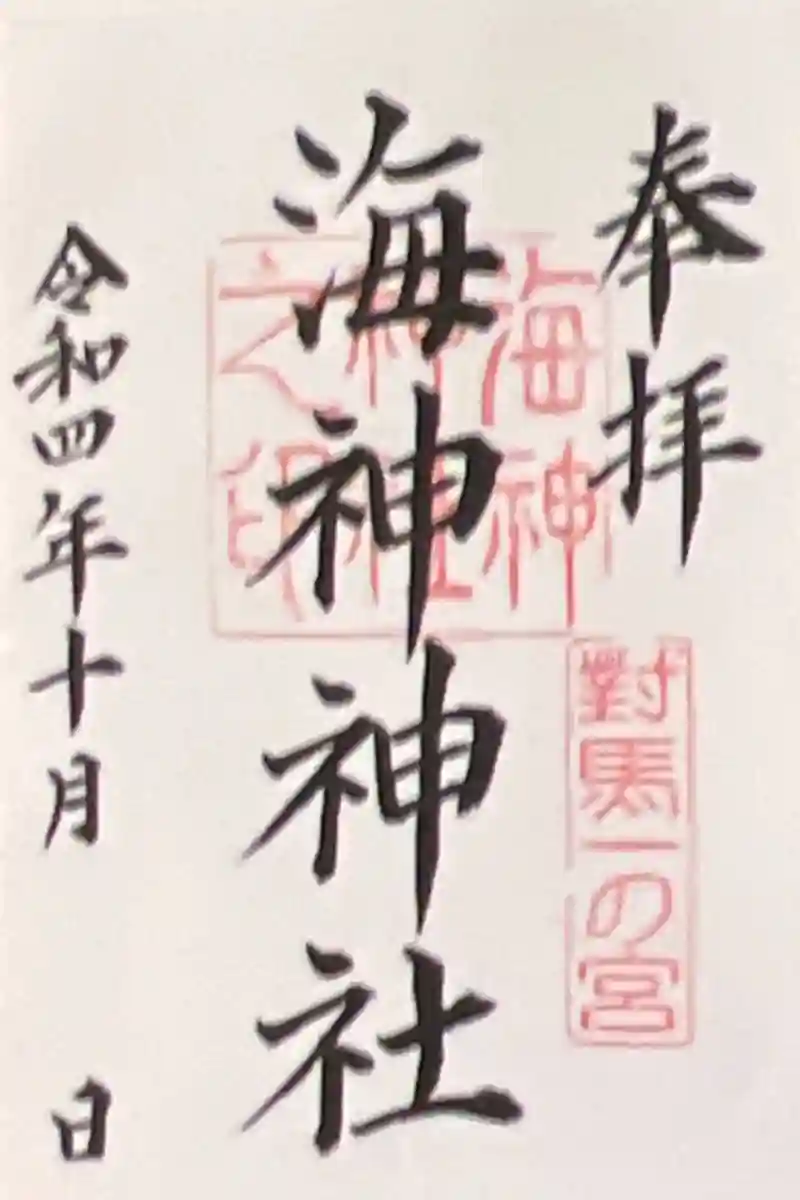 奉拝
對馬一の宮
海神神社
海神
神社
之印
令和四年十月　日